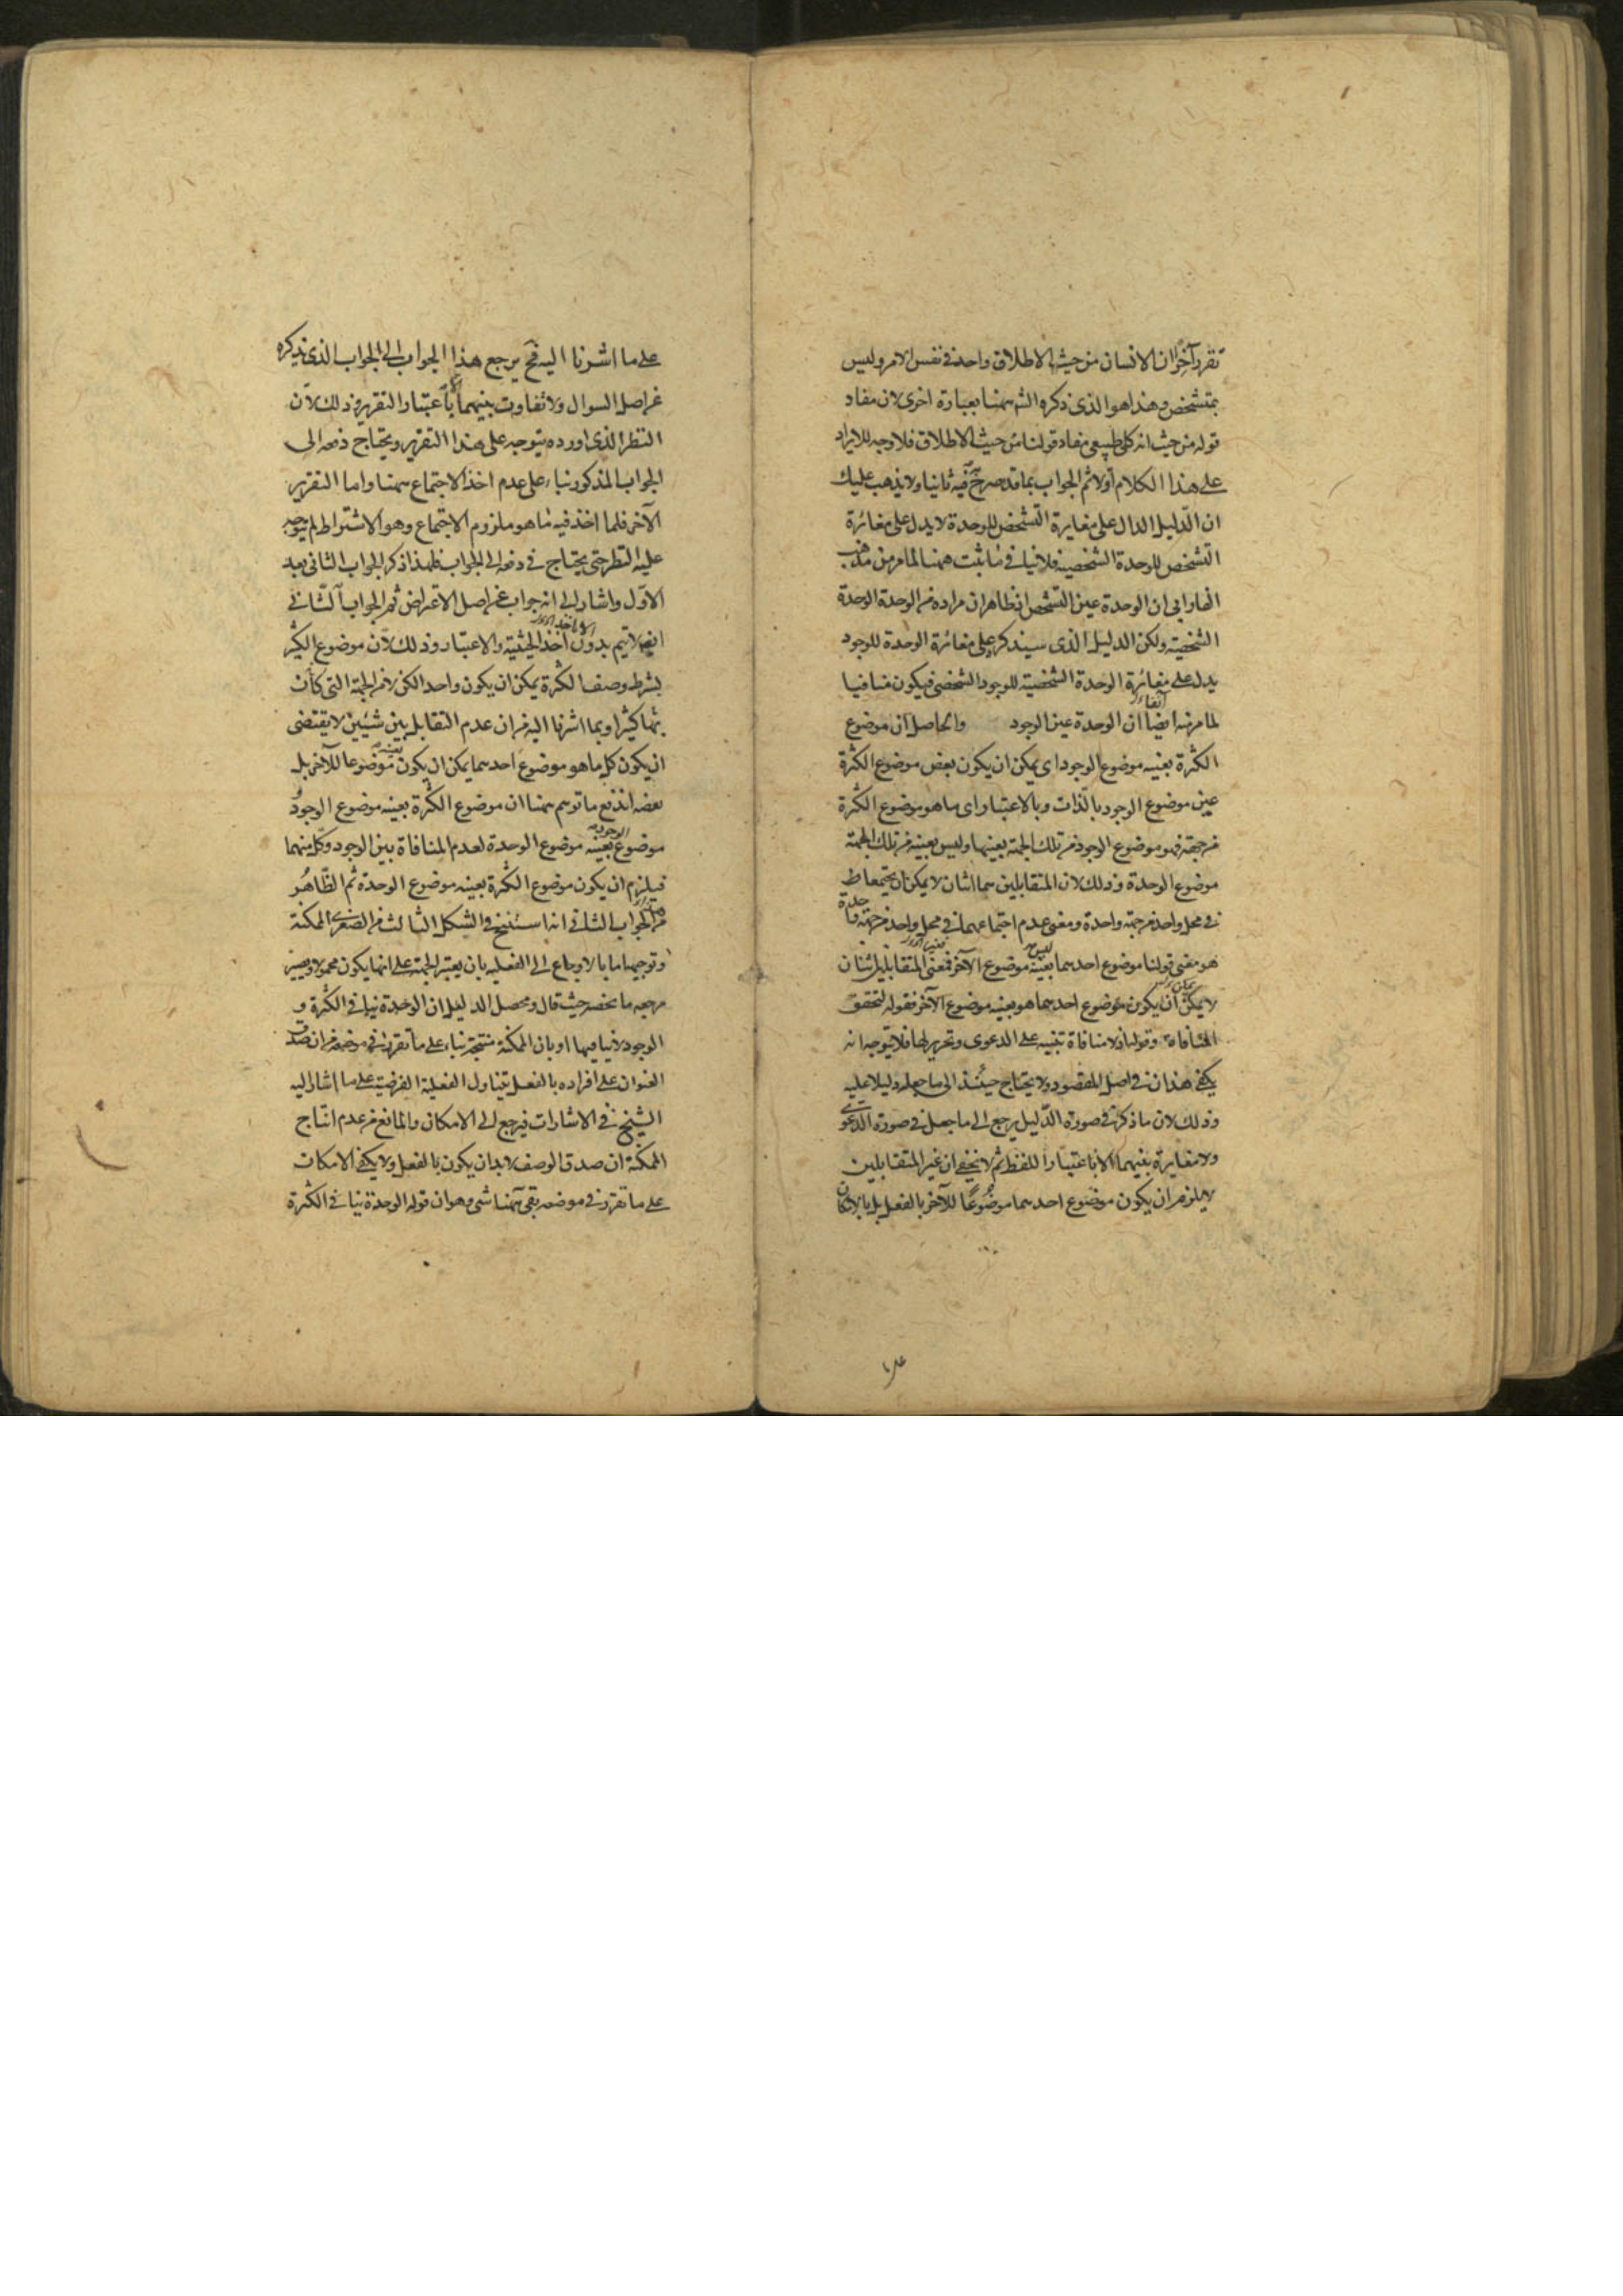 تقرر آخر ان الانسان من حيث الاطلاق واحد في نفس الامر وليس
بمتشخص وهذا هو الذي ذكره الش ههنا بعبارة اخرى لان مفاد
قوله من حيث انه كلي طبيعي مفاد قولنا من حيث الاطلاق فلا وجه للايراد
على هذا الكلام اولا ثم الجواب بما قد صرح فيه ثانيا ولا يذهب عليك
ان الدليل الدال على مغايرة التشخص للوحدة لا يدل على مغائرة
التشخص للوحدة الشخصية فلا ينافي ما ثبت ههنا لما مر من مذهب
الفارابي ان الوحدة عين التشخص اذ ظاهر ان مراده من الوحدة الوحدة
الشخصية ولكن الدليل الذي سيذكر على مغائرة الوحدة للوجود
يدل على مغائرة الوحدة الشخصية للوجود الشخصي فيكون منافيا
لما مر منه ايضا آنفا ان الوحدة عين الوجود والحاصل ان موضوع
الكثرة بعينه موضوع الوجود اي يمكن ان يكون بعض موضوع الكثرة
عين موضوع الوجود بالذات وبالاعتبار اي ما هو موضوع الكثرة
من جهة فهو موضوع الوجود من تلك الجهة بعينها وليس بعينه من تلك الجهة
موضوع الوحدة وذلك لان المتقابلين هما اثنان لا يمكن ان يجتمعا
في محل واحد من جهة واحدة ومعنى عدم اجتماعهما في محل واحد من جهة واحدة
هو معنى قولنا موضوع احدهما ليس بعينه موضوع الآخر فمعنى المتقابلين اثنان
لا يمكن ان يكون موضوع احدهما هو بعينه موضوع الآخر فقوله لتحقق
المنافاة وقوله اذ لا منافاة تنبيه على الدعوى وتحرير لها فلا يتوجه انه
يكفي هذان في اصل المقصود ولا يحتاج حينئذ الى ما جعله دليلا عليه
وذلك لان ما ذكر في صورة الدليل يرجع الى ما جعل في صورة الدعوى
ولا مغايرة بينهما الا باعتبار اللفظ ثم لا يخفى ان غير المتقابلين
لا يلزم ان يكون موضوع احدهما موضوعا للآخر بالفعل بل بالامكان
على ما اشرنا اليه فح يرجع هذا الجواب الى الجواب الذي نذكره
عن اصل السوال ولا تفاوت بينهما الا باعتبار التقرير وذلك لان
النظر الذي اورده يتوجه على هذا التقرير ويحتاج دفعه الى
الجواب المذكور بناء على عدم اخذ الاجتماع ههنا واما التقرير
الآخر فلما اخذ فيه ما هو ملزوم الاجتماع وهو الاشتراط لم يتوجه
عليه النظر حتى يحتاج في دفعه الى الجواب فلهذا ذكر الجواب الثاني بعد
الاول واشار الى انه جواب عن اصل الاعتراض ثم الجواب الثاني
ايضا لا يتم بدون اخذ الحيثية والاعتبار وذلك لان موضوع الكثير
بشرط وصف الكثرة يمكن ان يكون واحدا لكن لا من الجهة التي كان
بها كثيرا وبما اشرنا اليه من ان عدم التقابل بين شيئين لا يقتضي
ان يكون كل ما هو موضوع احدهما يمكن ان يكون بعينه موضوعا للآخر بل
بعضه اندفع ما توهم ههنا ان موضوع الكثرة بعينه موضوع الوجود
وموضوع الوجود بعينه موضوع الوحدة لعدم المنافاة بين الوجود وكل منهما
فيلزم ان يكون موضوع الكثرة بعينه موضوع الوحدة ثم الظاهر
من الجواب الثاني انه استنتج في الشكل الثالث من الصغرى الممكنة
وتوجيهها اما بالارجاع الى الفعلية بان يعتبر الجهة على انها يكون محمولا ويصير
مرجعه ما لخصه حيث قال ومحصل الدليل ان الوحدة ينافي الكثرة و
الوجود لا ينافيها او بان الممكنة منتجة بناء على ما تقرر في موضعه من ان صدق
العنوان على افراده بالفعل يتناول الفعلية الفرضية على ما اشار اليه
الشيخ في الاشارات فيرجع الى الامكان والمانع من عدم انتاج
الممكنة ان صدق الوصف لا بد ان يكون بالفعل ولا يكفي الامكان
على ما تقرر في موضعه بقي ههنا شيء وهو ان قوله الوحدة ينافي الكثرة